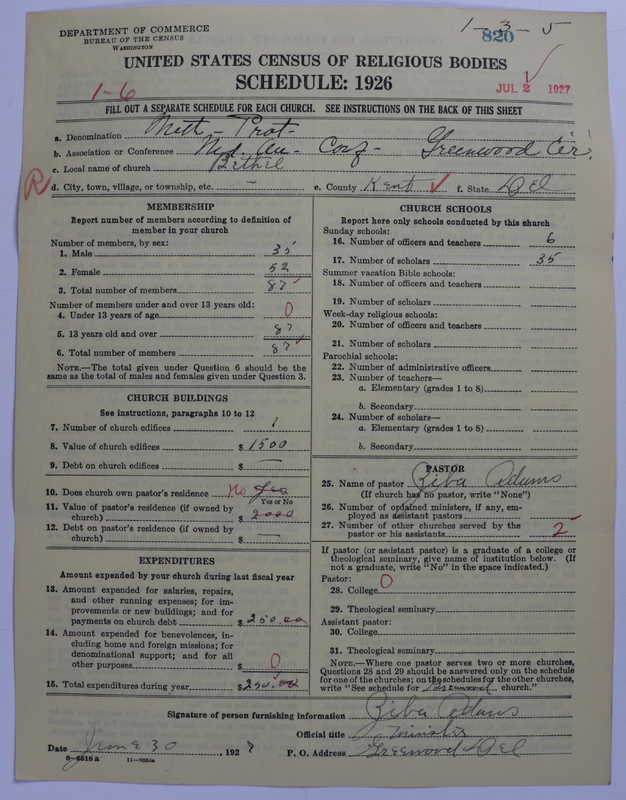 DEPARTMENT OF COMMERCE
BUREAU OF THE CENSUS
WASHINGTON
1-3-5
820
UNITED STATES CENSUS OF RELIGIOUS BODIES
SCHEDULE: 1926
1-6
JUL 2 1927
FILL OUT A SEPARATE SCHEDULE FOR EACH CHURCH. SEE INSTRUCTIONS ON THE BACK OF THIS SHEET
a. Denomination Meth- Prot-
b. Association or Conference Greenwood Cir.
c. Local name of church
R d. City, town, village, or township, etc. — e. County Kent ✓ f. State Del
MEMBERSHIP
Report number of members according to definition of
member in your church
Number of members, by sex:
1. Male 35
2. Female 52
3. Total number of members 87
Number of members under and over 13 years old:
4. Under 13 years of age 0
5. 13 years old and over 87
6. Total number of members 87
NOTE.—The total given under Question 6 should be
same as the total of males and females given under Question 3.
CHURCH BUILDINGS
See instructions, paragraphs 10 to 12
7. Number of church edifices 1
8. Value of church edifices $ 1500
9. Debt on church edifices $ —
10. Does church own pastor's residence No yes
Yes or No
11. Value of pastor's residence (if owned by
church) $ 2000
12. Debt on pastor's residence (if owned by
church) $ —
EXPENDITURES
Amount expended by your church during last fiscal year
13. Amount expended for salaries, repairs,
and other running expenses; for im-
provements or new buildings; and for
payments on church debt $ 250.00
14. Amount expended for benevolences, in-
cluding home and foreign missions; for
denominational support; and for all
other purposes $ 0
15. Total expenditures during year $ 250.00
CHURCH SCHOOLS
Report here only schools conducted by this church
Sunday schools:
16. Number of officers and teachers 6
17. Number of scholars 35
Summer vacation Bible schools:
18. Number of officers and teachers
19. Number of scholars
Week-day religious schools:
20. Number of officers and teachers
21. Number of scholars
Parochial schools:
22. Number of administrative officers
23. Number of teachers—
a. Elementary (grades 1 to 8)
b. Secondary
24. Number of scholars—
a. Elementary (grades 1 to 8)
b. Secondary
PASTOR
25. Name of pastor Ziba Adams
(If church has no pastor, write "None")
26. Number of ordained ministers, if any, em-
ployed as assistant pastors
27. Number of other churches served by the
pastor or his assistants 2
If pastor (or assistant pastor) is a graduate of a college or
theological seminary, give name of institution below. (If
not a graduate, write "No" in the space indicated.)
Pastor:
28. College 0
29. Theological seminary
Assistant pastor:
30. College
31. Theological seminary
NOTE.—Where one pastor serves two or more churches,
Questions 28 and 29 should be answered only on the schedule
for one of the churches; on the schedules for the other churches,
write "See schedule for Greenwood church."
Signature of person furnishing information Ziba Adams
Official title Minister
Date June 30, 1927 P. O. Address Greenwood Del
8—5518 a 11—9054a